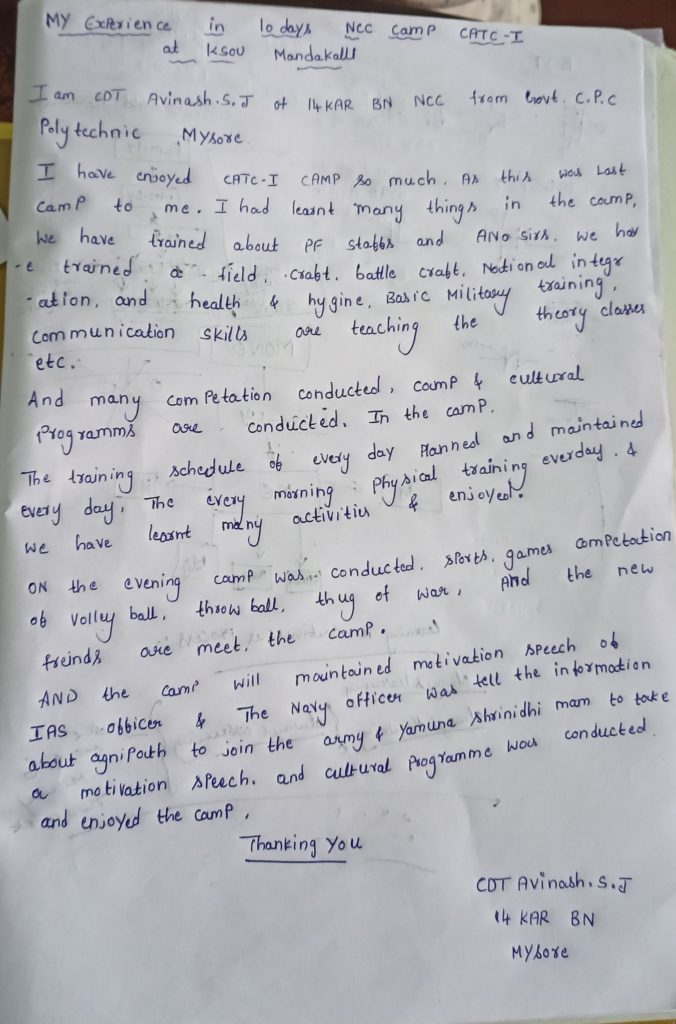 MY Experience in 10 days NCC Camp CATC-I
at KSOU Mandakalli
I am CDT Avinash.S.J of 14 KAR BN NCC from Govt. C.P.C
Polytechnic Mysore
I have enjoyed CATC-I CAMP so much. As this was Last
Camp to me. I had learnt many things in the camp,
We have trained about PF Stabbs and ANO sirs. We hav
-e trained a field, craft, battle craft, National integr
-ation, and health & hygine, Basic Military training,
Communication skills are teaching the theory classes
etc.
And many competation conducted, camp & cultural
Programms are conducted. In the camp.
The training schedule of every day planned and maintained
every day, The every morning physical training everday. &
we have learnt many activitis & enjoyed.
ON the evening camp was conducted, sports, games competation
of volley ball, throw ball, thug of war, And the new
freinds are meet, the camp.
AND the camp will maintained motivation speech of
IAS officer & The Navy officer was tell the information
about agnipath to join the army & Yamuna shrinidhi mam to take
a motivation speech. and cultural programme was conducted
and enjoyed the camp.
Thanking You
CDT Avinash.S.J
14 KAR BN
Mysore